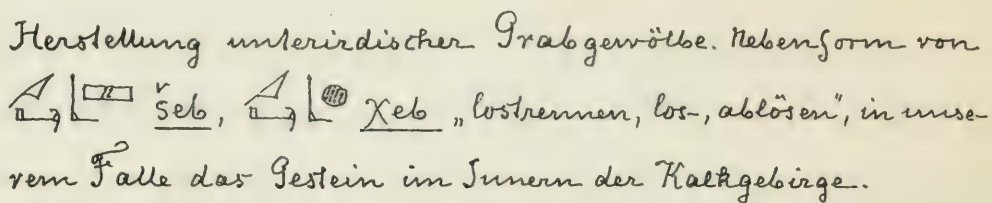 Herstellung unterirdischer Grabgewölbe. Nebenform von
šeb, χeb „lostrennen, los-, ablösen", in unse-
rem Falle das Gestein im Innern der Kalkgebirge.